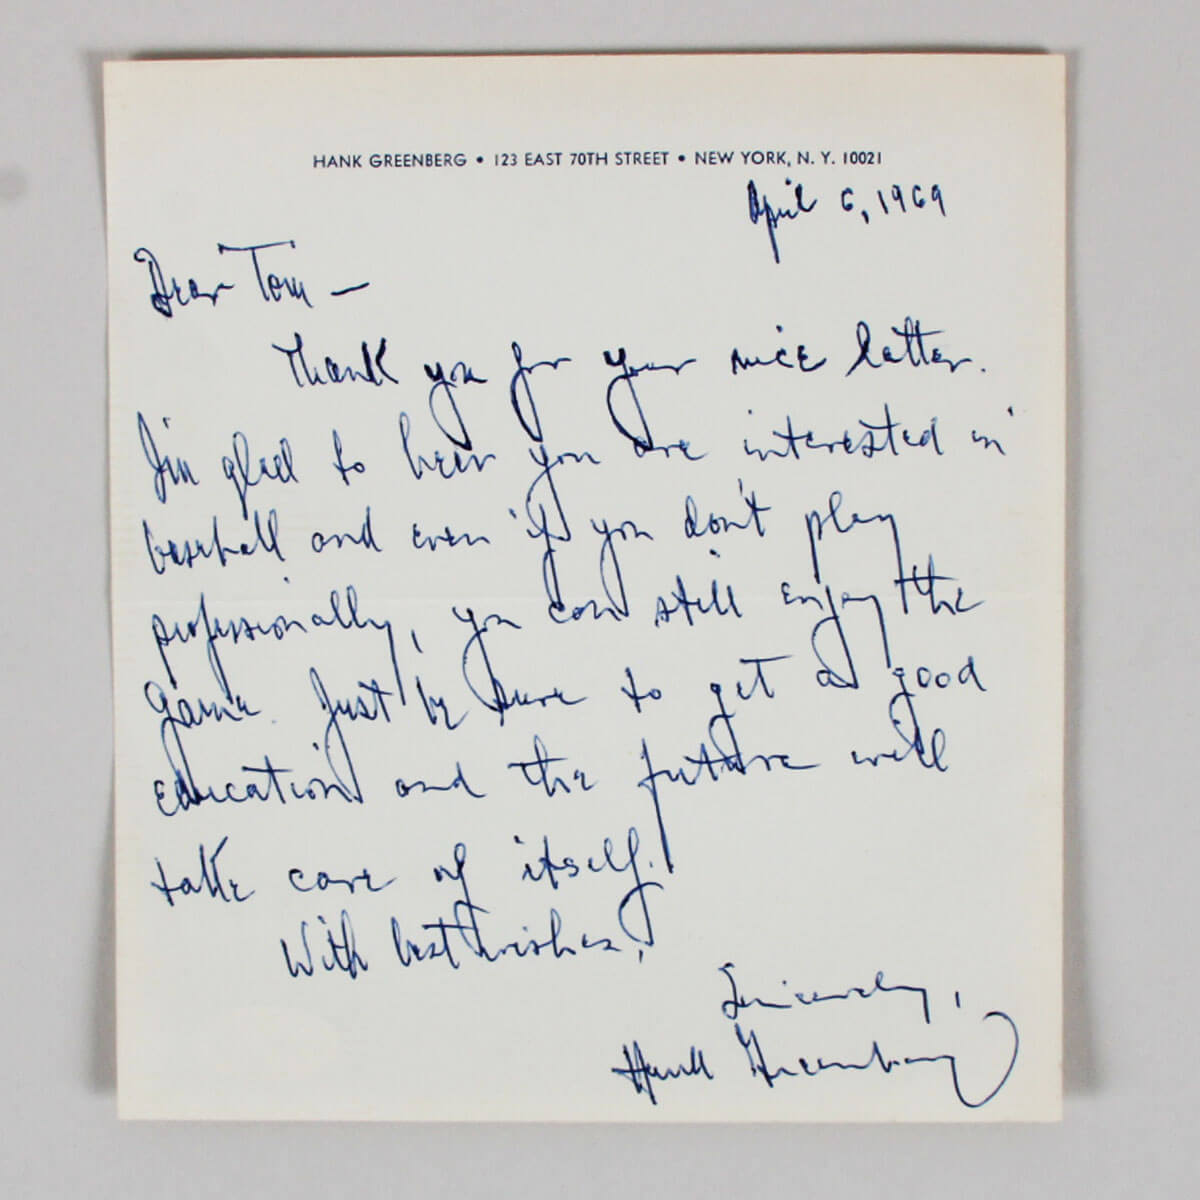 HANK GREENBERG • 123 EAST 70TH STREET • NEW YORK, N. Y. 10021
April 6, 1969
Dear Tom —
Thank you for your nice letter.
I'm glad to hear you are interested in
baseball and even if you don't play
professionally, you can still enjoy the
game. Just be sure to get a good
education and the future will
take care of itself.
With best wishes,
Sincerely,
Hank Greenberg